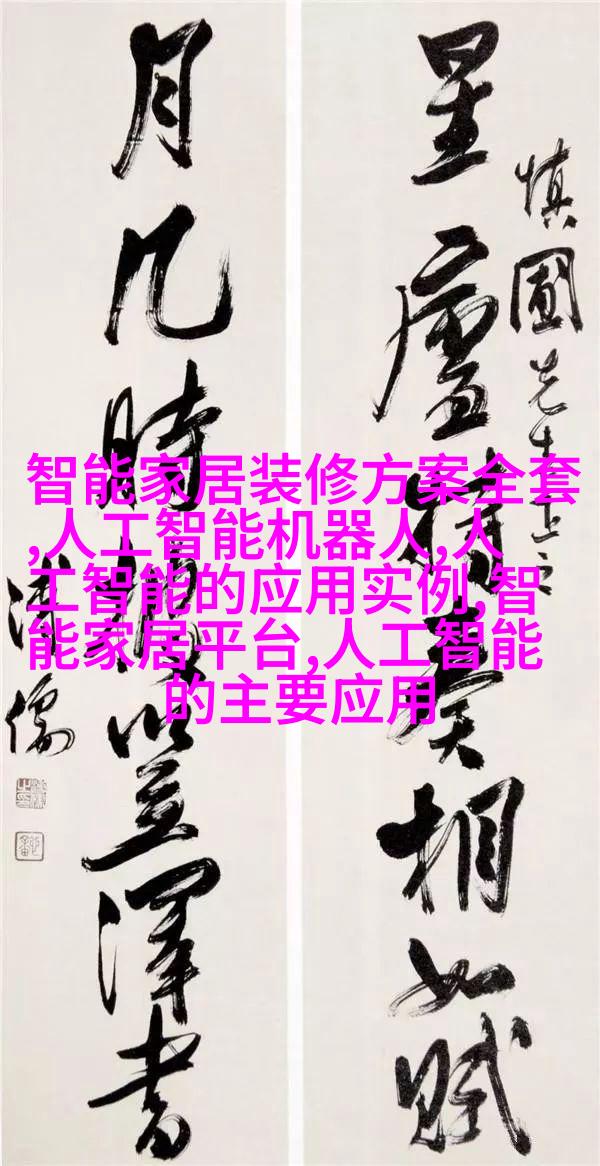 慎圃先生正之
星廬奏相如賦
月几時笠澤書
溥儒
智能家居装修方案全套
,人工智能机器人,人
工智能的应用实例,智
能家居平台,人工智能
的主要应用